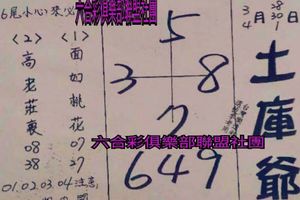 6尾小心來
六合彩俱樂部聯盟社團
3月28 30
4 1日
土庫爺
5
3 8
7
649
六合彩俱樂部聯盟社團
<1>
面如桃花
07
27
<2>
高老莊裏
08
38
01.02.03.04注意